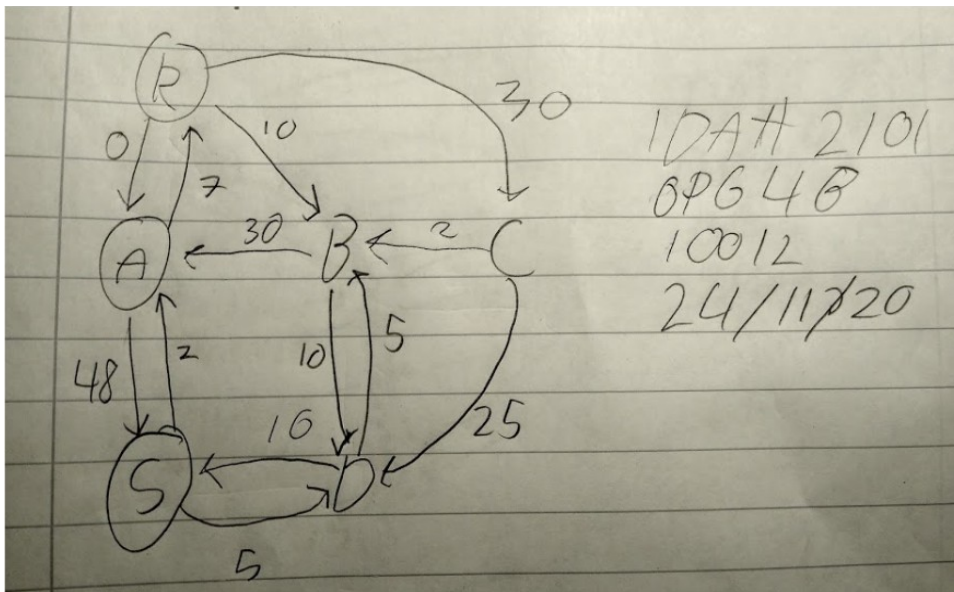 R
0 10 30
7
A 30 B 2 C
48 2 10 5
10 25
S D
5
IDATT 2101
OPG 4B
10012
24/11/20